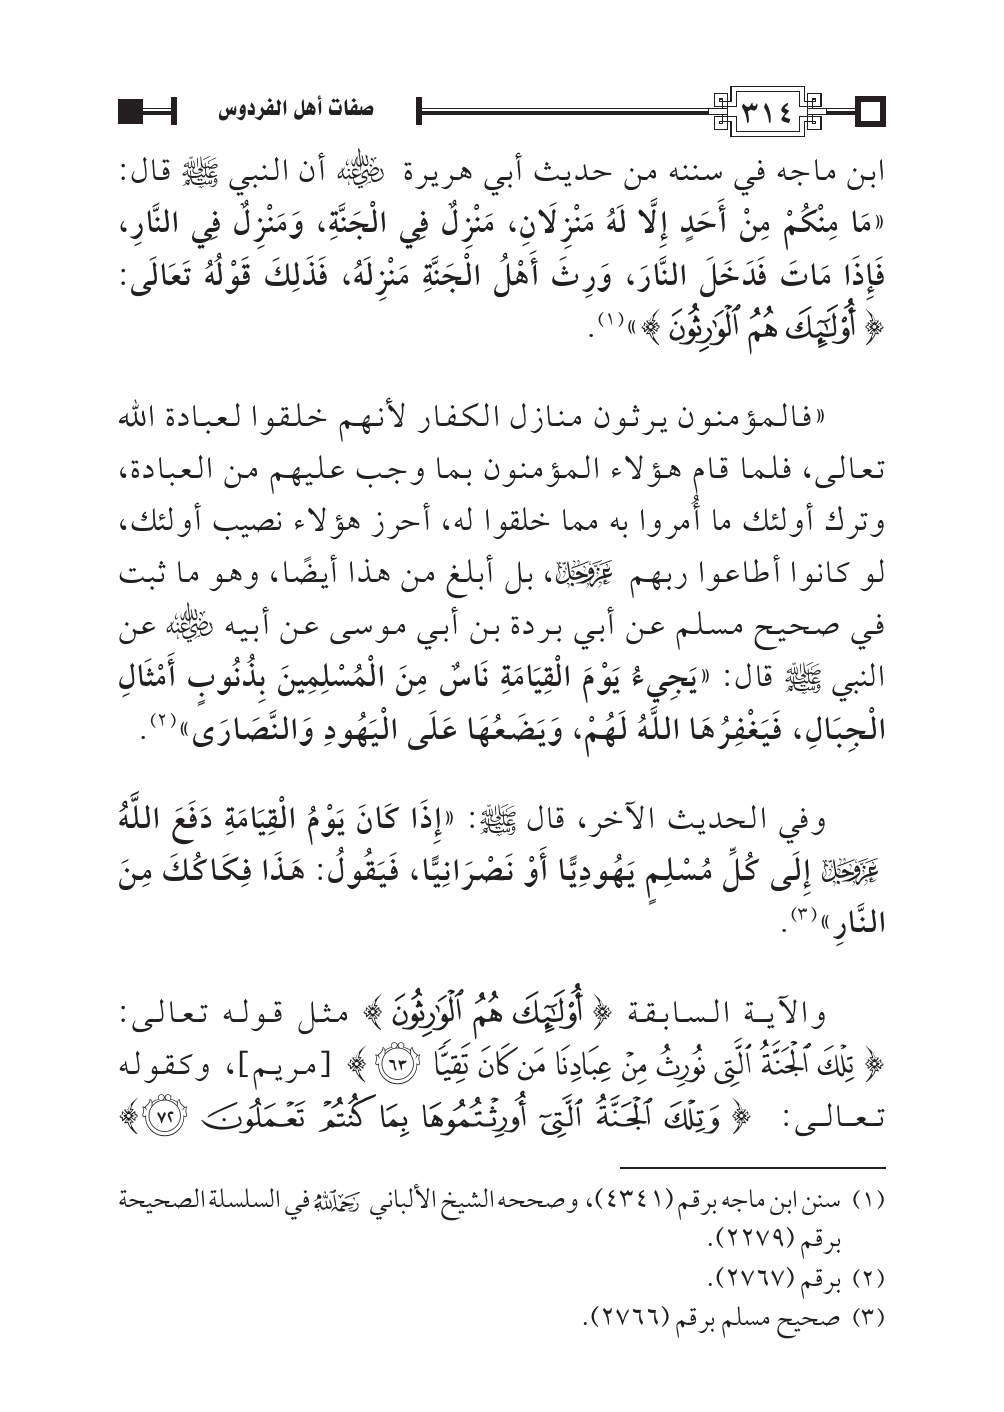 ٣١٤ صفات أهل الفردوس
ابن ماجه في سننه من حديث أبي هريرة رضي الله عنه أن النبي ﷺ قال:
«مَا مِنْكُمْ مِنْ أَحَدٍ إِلَّا لَهُ مَنْزِلَانِ، مَنْزِلٌ فِي الْجَنَّةِ، وَمَنْزِلٌ فِي النَّارِ،
فَإِذَا مَاتَ فَدَخَلَ النَّارَ، وَرِثَ أَهْلُ الْجَنَّةِ مَنْزِلَهُ، فَذَلِكَ قَوْلُهُ تَعَالَى:
﴿ أُوْلَٰٓئِكَ هُمُ ٱلْوَٰرِثُونَ ﴾»(١).
«فالمؤمنون يرثون منازل الكفار لأنهم خلقوا لعبادة الله
تعالى، فلما قام هؤلاء المؤمنون بما وجب عليهم من العبادة،
وترك أولئك ما أُمروا به مما خلقوا له، أحرز هؤلاء نصيب أولئك،
لو كانوا أطاعوا ربهم عز وجل، بل أبلغ من هذا أيضًا، وهو ما ثبت
في صحيح مسلم عن أبي بردة بن أبي موسى عن أبيه رضي الله عنه عن
النبي ﷺ قال: «يَجِيءُ يَوْمَ الْقِيَامَةِ نَاسٌ مِنَ الْمُسْلِمِينَ بِذُنُوبٍ أَمْثَالِ
الْجِبَالِ، فَيَغْفِرُهَا اللَّهُ لَهُمْ، وَيَضَعُهَا عَلَى الْيَهُودِ وَالنَّصَارَى»(٢).
وفي الحديث الآخر، قال ﷺ: «إِذَا كَانَ يَوْمُ الْقِيَامَةِ دَفَعَ اللَّهُ
عز وجل إِلَى كُلِّ مُسْلِمٍ يَهُودِيًّا أَوْ نَصْرَانِيًّا، فَيَقُولُ: هَذَا فِكَاكُكَ مِنَ
النَّارِ»(٣).
والآية السابقة ﴿ أُوْلَٰٓئِكَ هُمُ ٱلْوَٰرِثُونَ ﴾ مثل قوله تعالى:
﴿ تِلْكَ ٱلْجَنَّةُ ٱلَّتِى نُورِثُ مِنْ عِبَادِنَا مَن كَانَ تَقِيًّا ٦٣ ﴾ [مريم]، وكقوله
تعالى: ﴿ وَتِلْكَ ٱلْجَنَّةُ ٱلَّتِىٓ أُورِثْتُمُوهَا بِمَا كُنتُمْ تَعْمَلُونَ ٧٢ ﴾
(١) سنن ابن ماجه برقم (٤٣٤١)، وصححه الشيخ الألباني رحمه الله في السلسلة الصحيحة
برقم (٢٢٧٩).
(٢) برقم (٢٧٦٧).
(٣) صحيح مسلم برقم (٢٧٦٦).